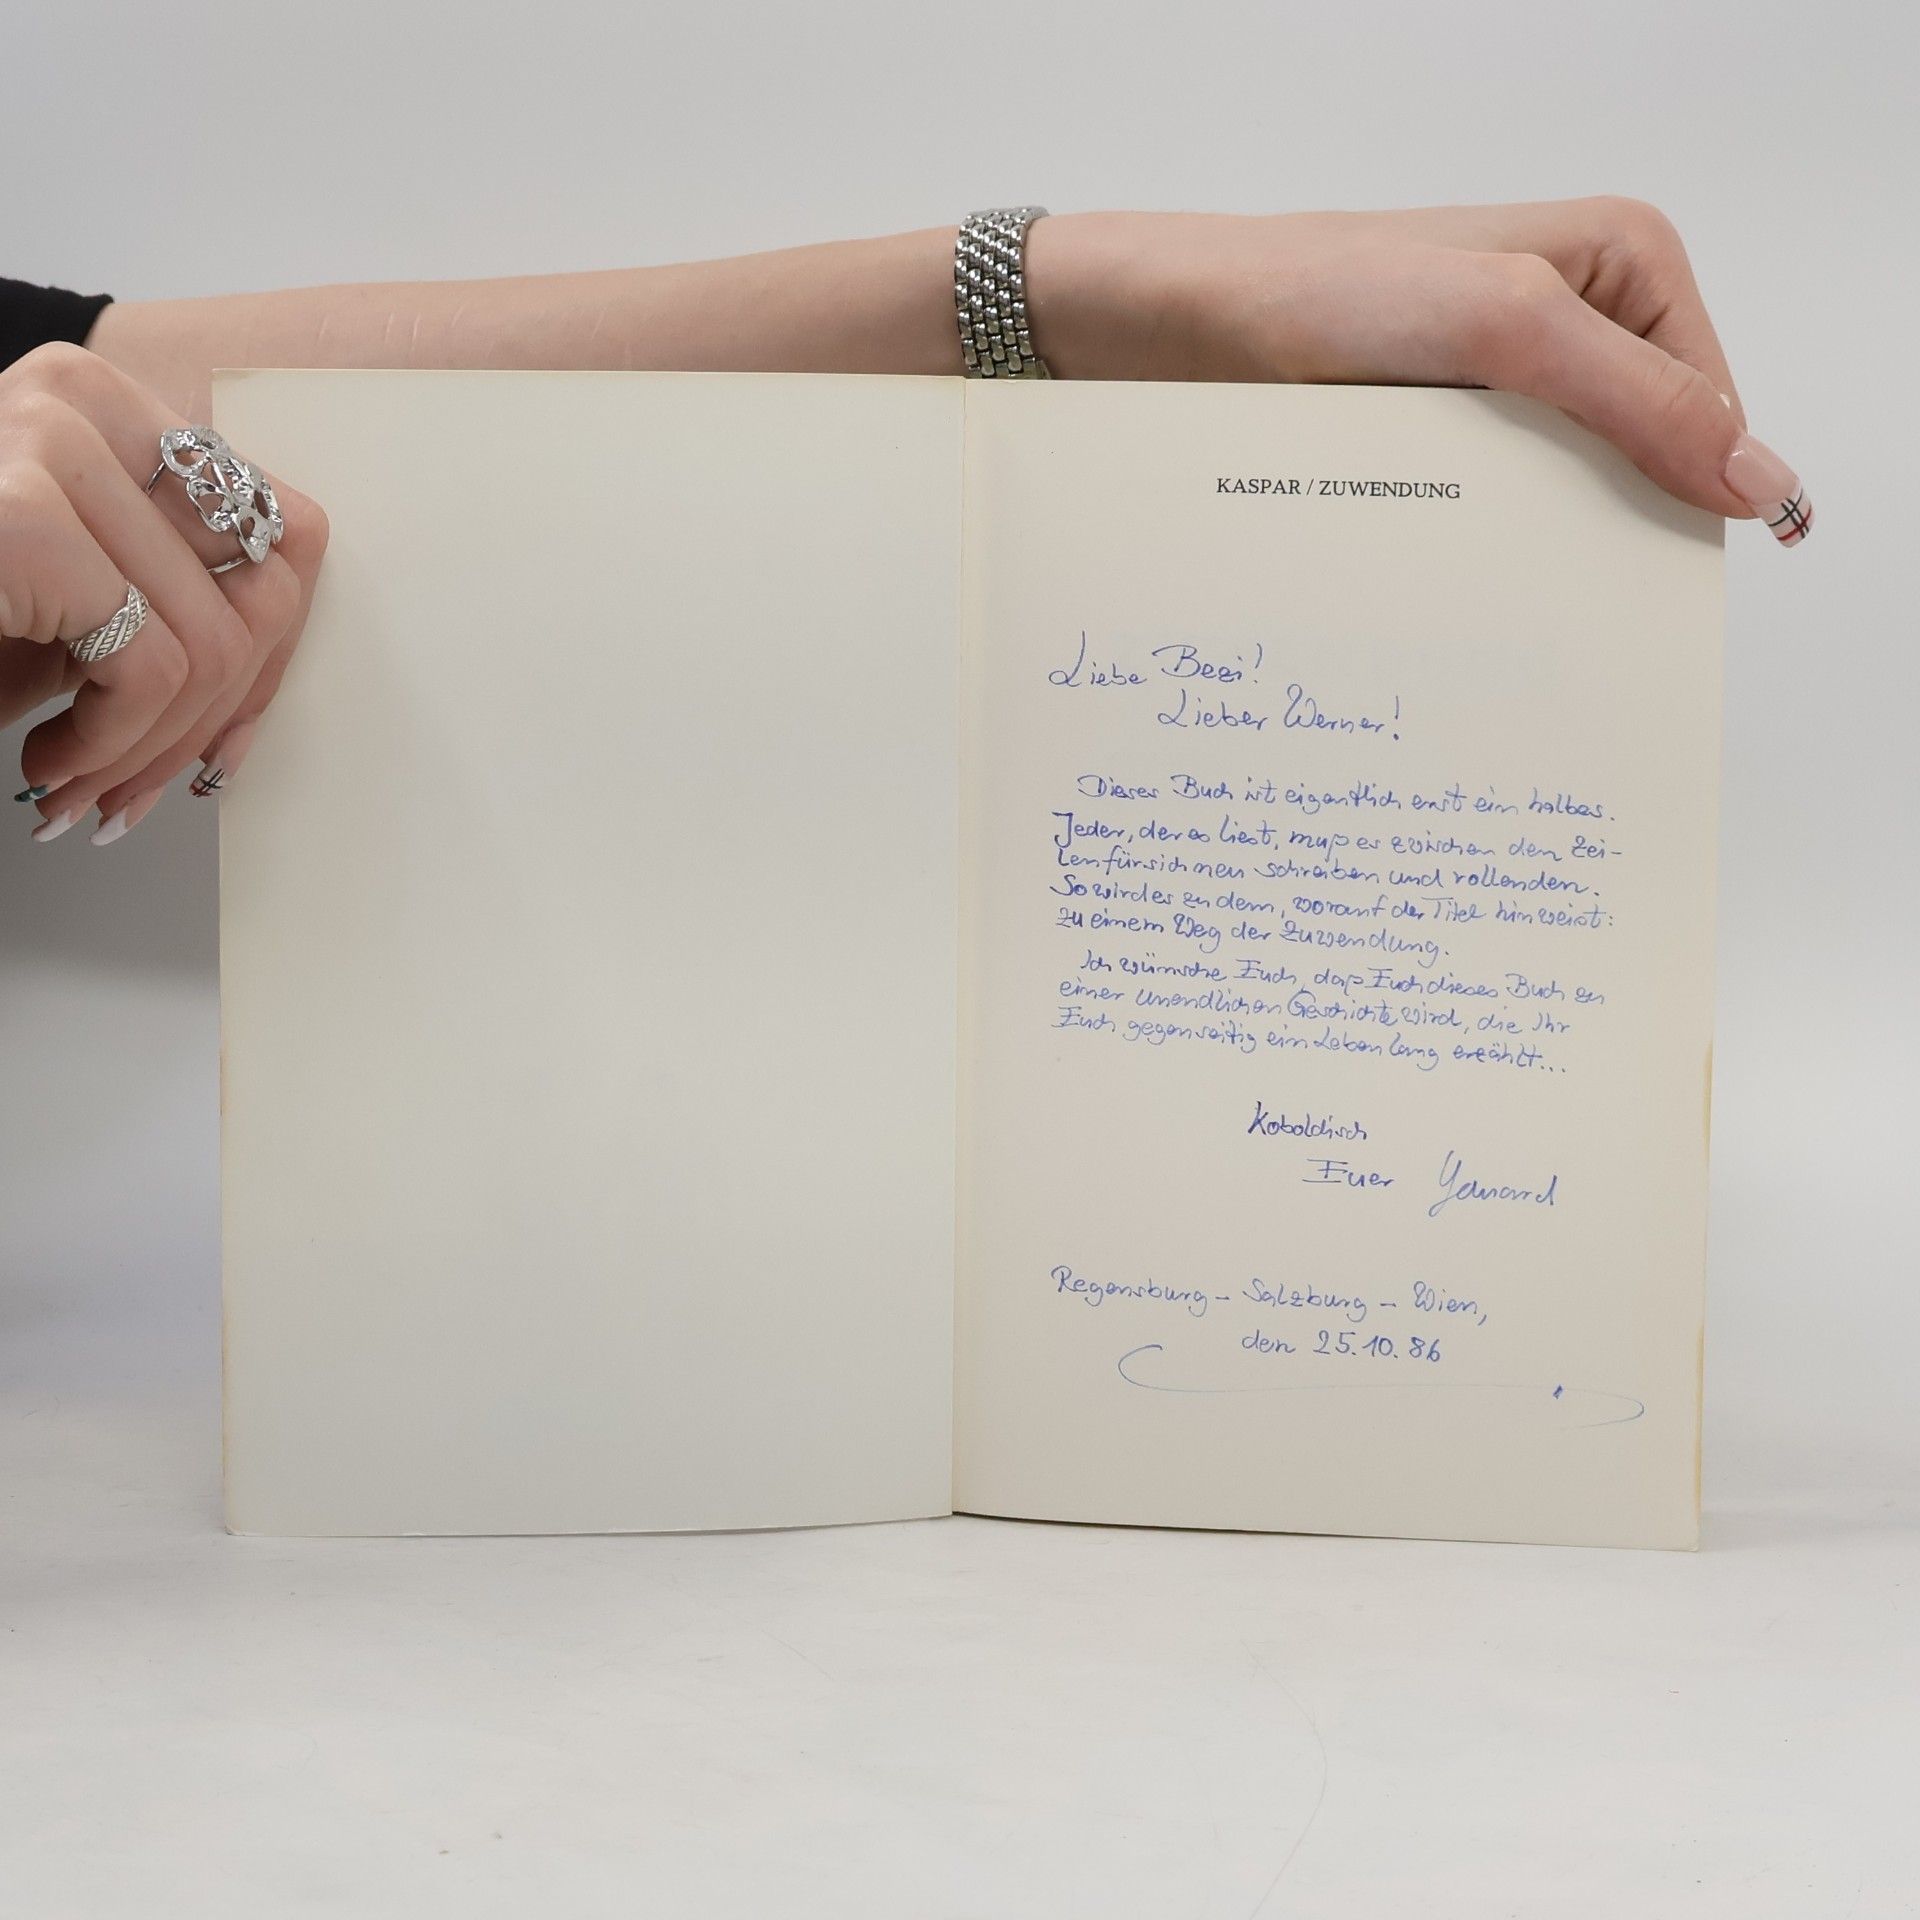 KASPAR / ZUWENDUNG
Liebe Bezi!
Lieber Werner!
Dieses Buch ist eigentlich erst ein halbes.
Jeder, der es liest, muß es zwischen den Zei-
len für sich neu schreiben und vollenden.
So wird es zu dem, worauf der Titel hinweist:
zu einem Weg der Zuwendung.
Ich wünsche Euch, daß Euch dieses Buch zu
einer unendlichen Geschichte wird, die Ihr
Euch gegenseitig ein Leben lang erzählt...
Koboldisch
Euer
Regensburg – Salzburg – Wien,
den 25.10.86